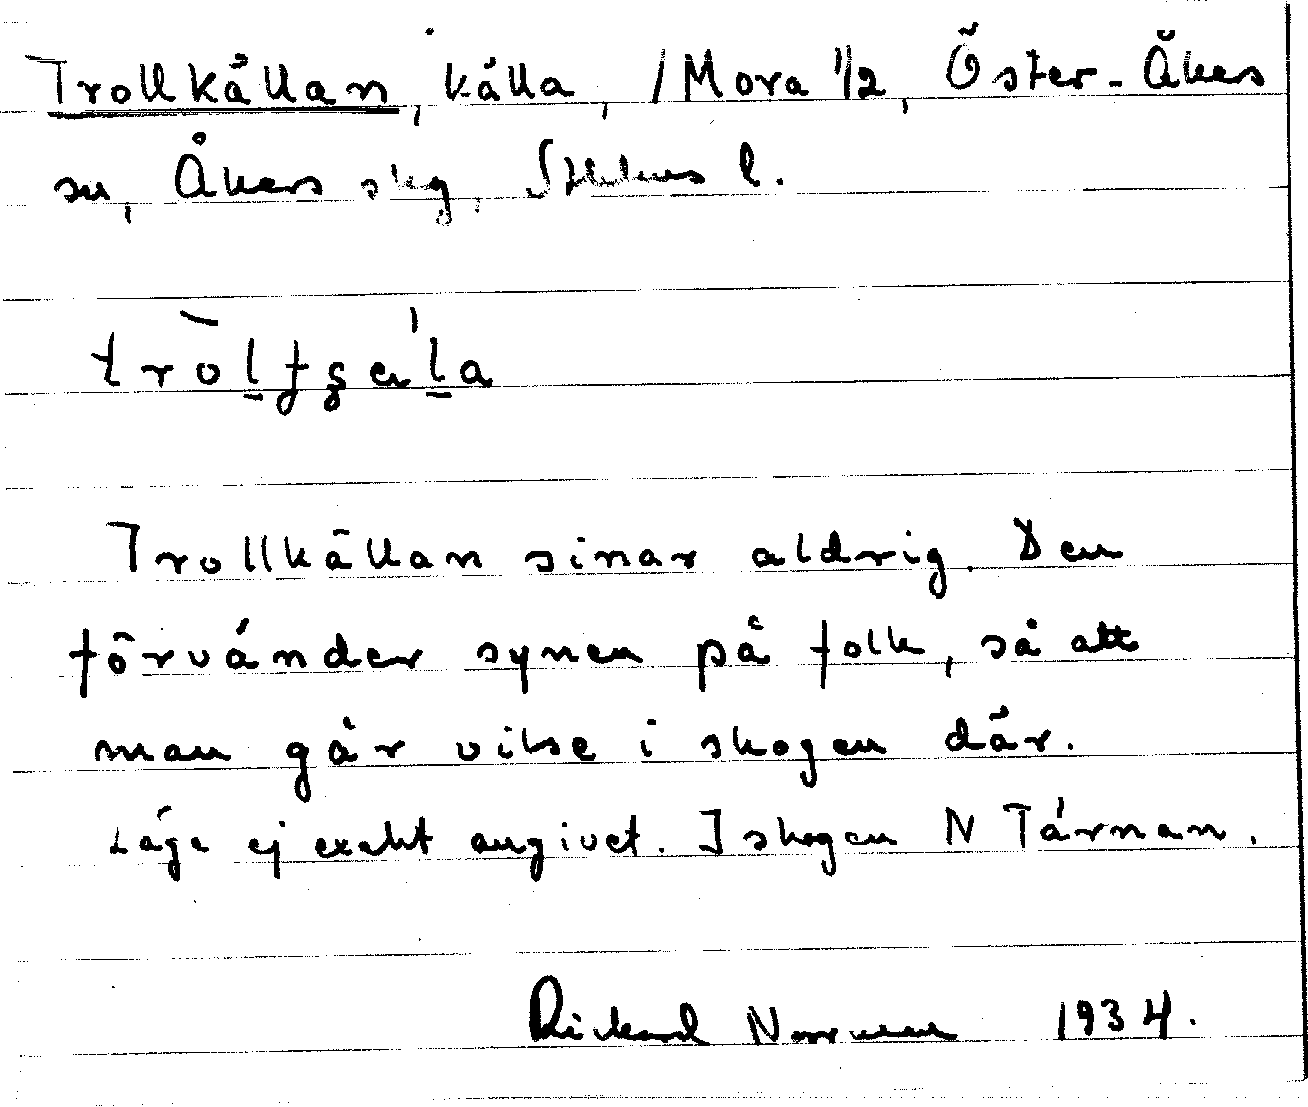 Trollkällan, källa, /Mora 1/2, Öster-Åkers
sn, Åkers skg, Sthlms l.
Trollkällan sinar aldrig. Den
förvänder synen på folk, så att
man går vilse i skogen där.
Läge ej exakt angivet. I skogen N Tärnan.
Rickard Norrman 1934.